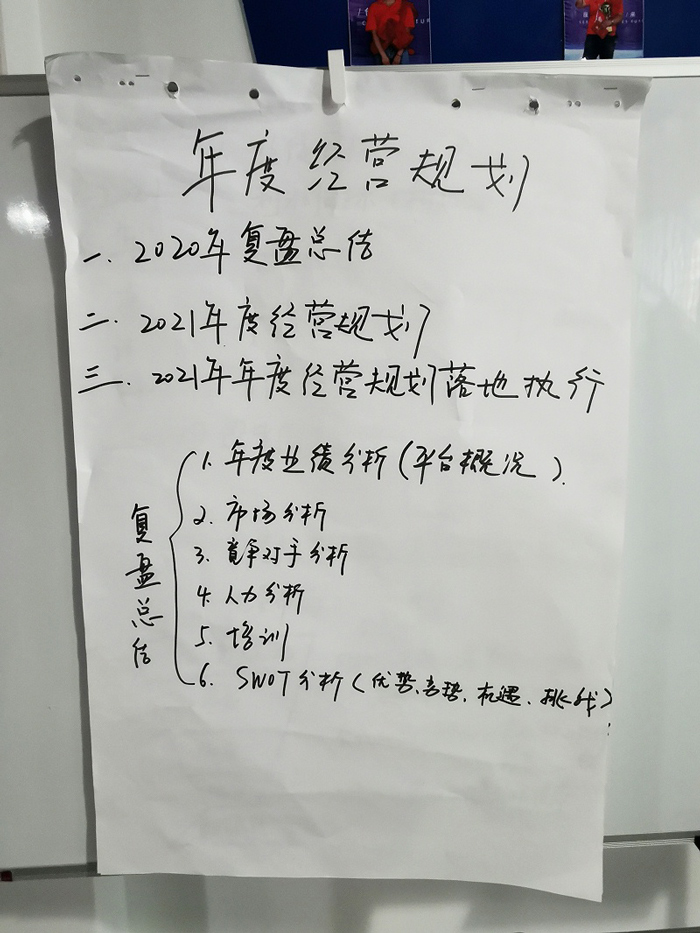 年度经营规划
一、2020年复盘总结
二、2021年度经营规划
三、2021年年度经营规划落地执行
复盘总结
1、年度业绩分析(平台概况)
2、市场分析
3、竞争对手分析
4、人力分析
5、培训
6、SWOT分析(优势、劣势、机遇、挑战)